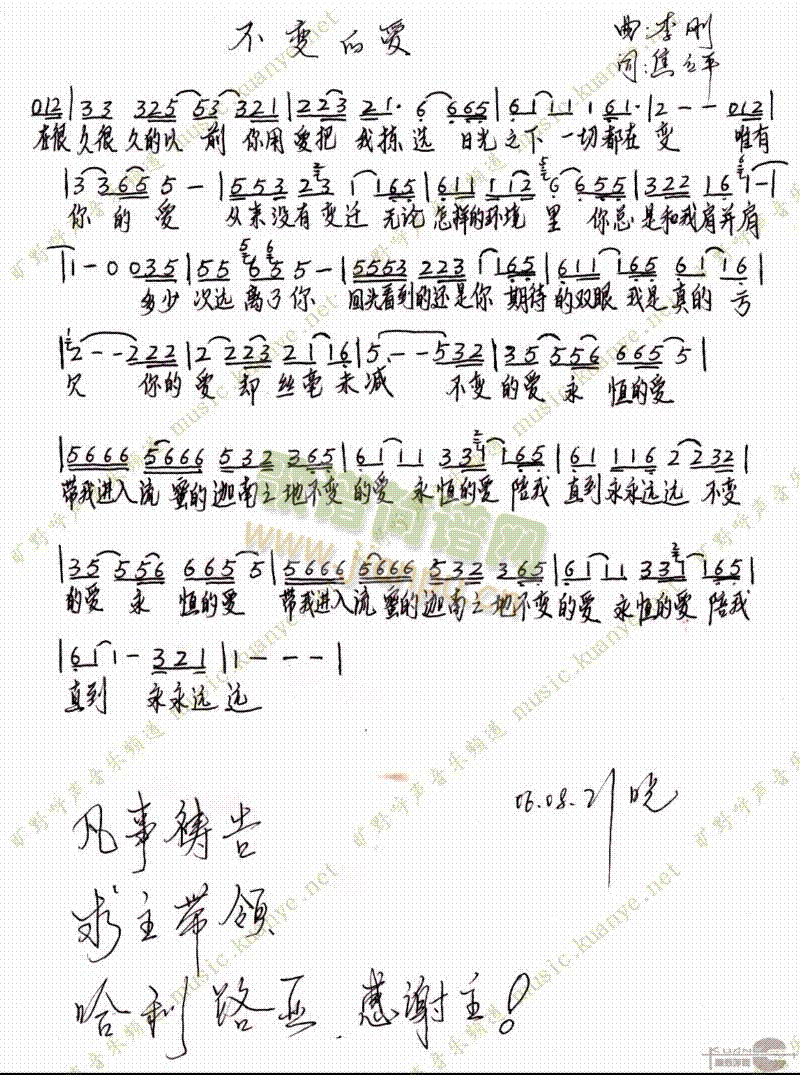 不变的爱
曲:李刚
词:焦立平
012|33 325 53 321|223 21· 6 665|6111 161·|2--012|
在很久很久的以前 你用爱把我拣选 日光之下一切都在变 唯有
|33655-|553 23 1165|611 112 6 655|322 16 1-|
你的爱 从来没有变迁 无论怎样的环境里 你总是和我肩并肩
|1-0035|55 655-|5553 223 1165|611 165 61 16|
多少次远离了你 回头看到的还是你 期待的双眼 我是真的亏
|2--222|2 223 2116|5--532|35 556 665 5|
欠 你的爱却丝毫未减 不变的爱永恒的爱
|5666 5666 532 365|6111 331 165|61 116 2232|
带我进入流蜜的迦南之地不变的爱 永恒的爱陪我直到永永远远 不变
|35 556 665 5|5666 5666 532 365|6111 331 165|
的爱永恒的爱 带我进入流蜜的迦南之地不变的爱 永恒的爱陪我
|611-321|1---|
直到 永永远远
06.08.21 晓
凡事祷告
求主带领
哈利路亚.感谢主!
歌谱简谱网
旷野呼声音乐频道 music.kuanye.net